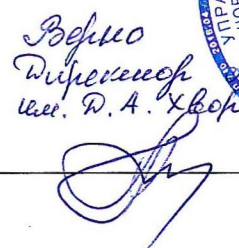 Верно
Директор
им. Д. А. Хвор
УПРА